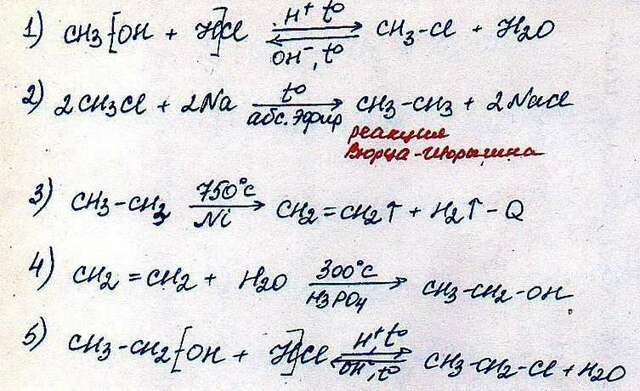 1) CH3[OH + H]Cl H⁺ t° ⇄ OH⁻, t° CH3-Cl + H2O
2) 2CH3Cl + 2Na t° → абс. эфир CH3-CH3 + 2NaCl
реакция
Вюрца-Шорыгина
3) CH3-CH3 750°C → Ni CH2=CH2↑ + H2↑ - Q
4) CH2=CH2 + H2O 300°C → H3PO4 CH3-CH2-OH
5) CH3-CH2[OH + H]Cl H⁺, t° ⇄ OH⁻, t° CH3-CH2-Cl + H2O